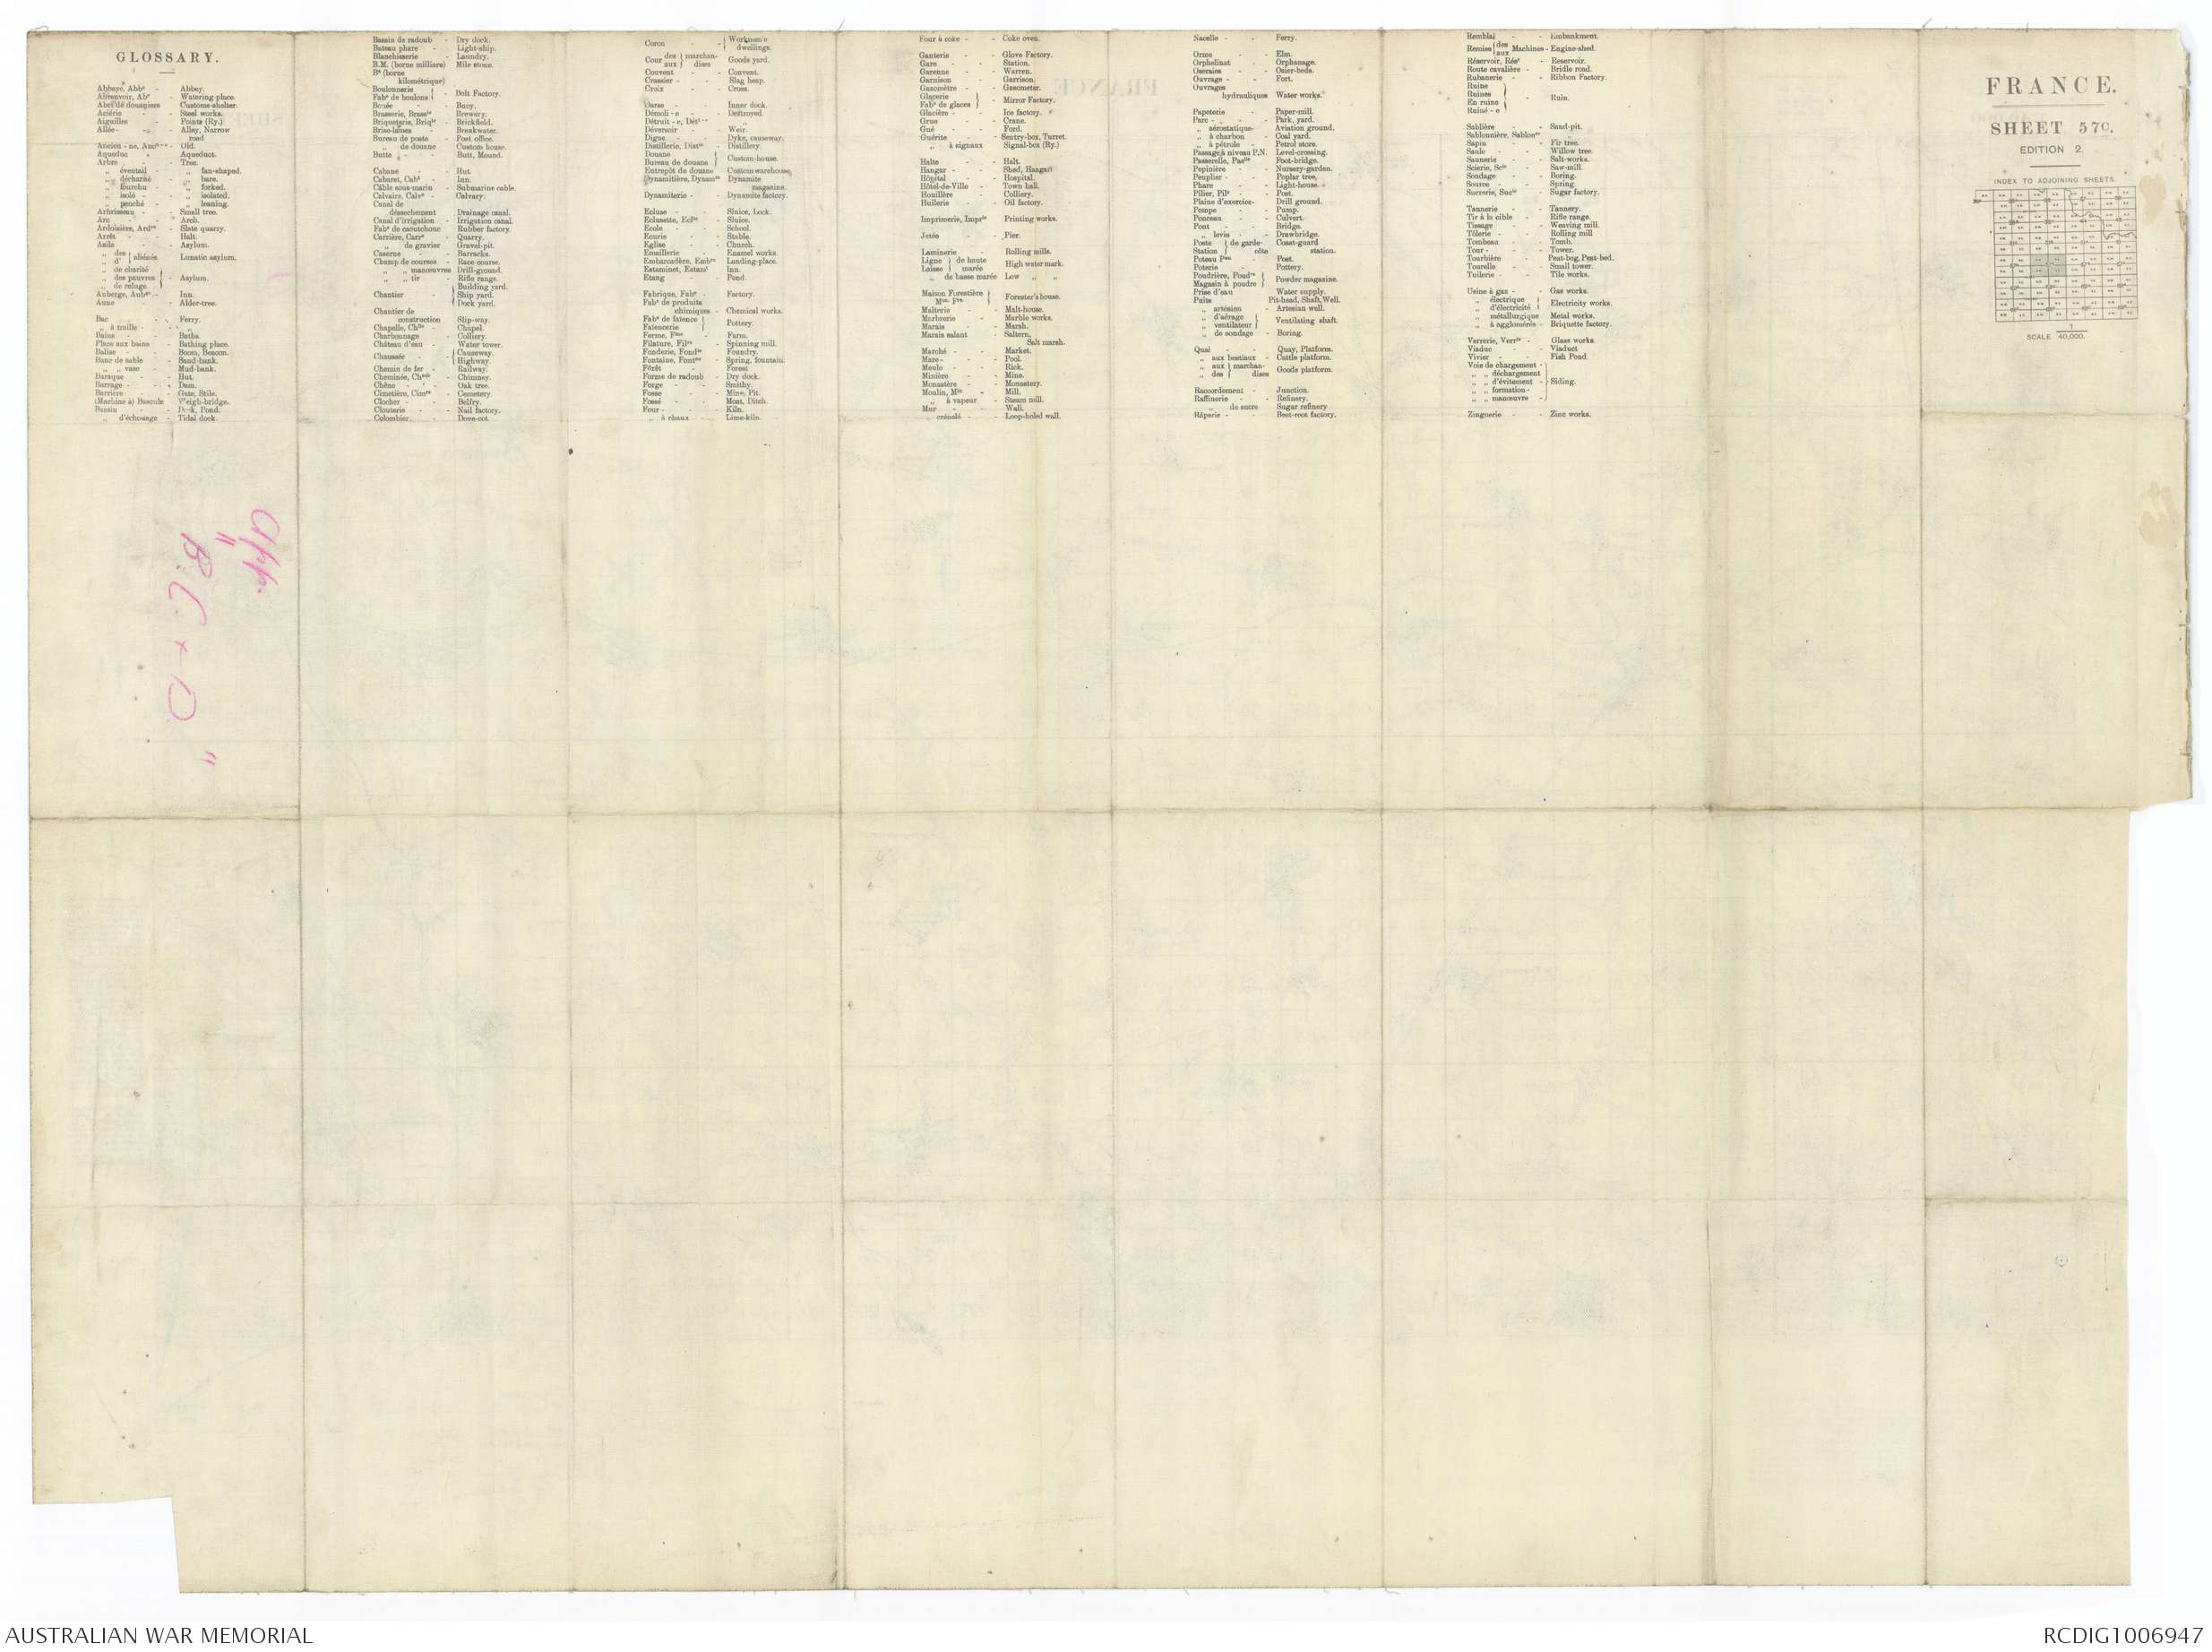 GLOSSARY.
Abbaye, Abbᵉ - Abbey.
Abreuvoir, Abʳ - Watering-place.
Abri de douaniers - Customs-shelter.
Aciérie - Steel works.
Aiguilles - Points (Ry.)
Allée - Alley, Narrow road
Aqueduc - Aqueduct.
Arbre - Tree.
„ éventail - „ fan-shaped.
„ décharné - „ bare.
„ fourchu - „ forked.
„ isolé - „ isolated.
„ penché - „ leaning.
Arbrisseau - Small tree.
Arc - Arch.
Ardoisière, Ardʳᵉ - Slate quarry.
Arrêt - Halt.
Asile - Asylum.
„ des } aliénés
„ d' } Lunatic asylum.
„ de charité
„ des pauvres } Asylum.
„ de refuge
Auberge, Aubᵍᵉ - Inn.
Aune - Alder-tree.
Bac - Ferry.
„ à traille - „
Bains - Baths.
Place aux bains - Bathing place.
Balise - Boom, Beacon.
Banc de sable - Sand-bank.
„ „ vase - Mud-bank.
Baraque - Hut.
Barrage - Dam.
Barrière - Gate, Stile.
(Machine à) Bascule - Weigh-bridge.
Bassin - Dock, Pond.
„ d'échouage - Tidal dock.
Bassin de radoub - Dry dock.
Bateau phare - Light-ship.
Blanchisserie - Laundry.
B.M. (borne milliare) Mile stone.
Bᵉ (borne
kilométrique)
Boulonnerie
Fabᵉ de boulons } Bolt Factory.
Bouée - Buoy.
Brasserie, Brassⁱᵉ - Brewery.
Briqueterie, Briqⁱᵉ - Brickfield.
Brise-lames - Breakwater.
Bureau de poste - Post office.
„ de douane - Custom house.
Butte - Butt, Mound.
Cabane - Hut.
Cabaret, Cabᵗ - Inn.
Câble sous-marin - Submarine cable.
Calvaire, Calvᵉ - Calvary.
Canal de
déssechement - Drainage canal.
Canal d'irrigation - Irrigation canal.
Fabᵉ de caoutchouc - Rubber factory.
Carrière, Carrᵉ - Quarry.
„ de gravier - Gravel-pit.
Caserne - Barracks.
Champ de courses - Race course.
„ „ manœuvres - Drill-ground.
„ „ tir - Rifle range.
Chantier - { Building yard.
Ship yard.
Dock yard.
Chantier de
construction - Slip-way.
Chapelle, Chˡˡᵉ - Chapel.
Charbonnage - Colliery.
Château d'eau - Water tower.
Chaussée - { Causeway.
Highway.
Chemin de fer - Railway.
Cheminée, Chᵉᵉ - Chimney.
Chêne - Oak tree.
Cimetière, Cimʳᵉ - Cemetery.
Clocher - Belfry.
Clouterie - Nail factory.
Colombier - Dove-cot.
Coron - { Workmen's
dwellings.
Cour { des } marchan-
aux } dises Goods yard.
Couvent - Convent.
Crassier - Slag heap.
Croix - Cross.
Darse - Inner dock.
Démoli-e - Destroyed.
Déversoir - Weir.
Digue - Dyke, causeway.
Distillerie, Distⁱᵉ - Distillery.
Douane
Bureau de douane } Custom-house.
Entrepôt de douane - Custom warehouse.
Dynamitière, Dynamʳᵉ - Dynamite
magazine.
Dynamiterie - Dynamite factory.
Ecluse - Sluice, Lock.
Eclusette, Eclᵗᵉ - Sluice.
Ecole - School.
Ecurie - Stable.
Eglise - Church.
Emaillerie - Enamel works.
Embarcadère, Embʳᵉ - Landing-place.
Estaminet, Estamᵗ - Inn.
Etang - Pond.
Fabrique, Fabᵉ - Factory.
Fabᵉ de produits
chimiques - Chemical works.
Fabᵉ de faïence
Faïencerie } Pottery.
Ferme, Fᵐᵉ - Farm.
Filature, Filʳᵉ - Spinning mill.
Fonderie, Fondⁱᵉ - Foundry.
Fontaine, Fontⁿᵉ - Spring, fountain.
Forêt - Forest
Forme de radoub - Dry dock.
Forge - Smithy.
Fosse - Mine, Pit.
Fossé - Moat, Ditch.
Four - Kiln.
„ à chaux - Lime-kiln.
Four à coke - Coke oven.
Ganterie - Glove Factory.
Gare - Station.
Garenne - Warren.
Garnison - Garrison.
Gazomètre - Gasometer.
Glacerie
Fabᵉ de glaces } Mirror Factory.
Glacière - Ice factory.
Grue - Crane.
Gué - Ford.
Guérite - Sentry-box, Turret.
„ à signaux - Signal-box (Ry.)
Halte - Halt.
Hangar - Shed, Hangar.
Hôpital - Hospital.
Hôtel-de-Ville - Town hall.
Houillère - Colliery.
Huilerie - Oil factory.
Imprimerie, Imprⁱᵉ - Printing works.
Jetée - Pier.
Laminerie - Rolling mills.
Ligne } de haute
Laisse } marée High water mark.
„ de basse marée Low „ „
Maison Forestière
Mᵒⁿ Fʳᵉ } Forester's house.
Malterie - Malt-house.
Marbrerie - Marble works.
Marais - Marsh.
Marais salant - Saltern,
Salt marsh.
Marché - Market.
Mare - Pool.
Meule - Rick.
Minière - Mine.
Monastère - Monastery.
Moulin, Mⁱⁿ - Mill.
„ à vapeur - Steam mill.
Mur - Wall.
„ crénelé - Loop-holed wall.
Nacelle - Ferry.
Orme - Elm.
Orphelinat - Orphanage.
Oseraies - Osier-beds.
Ouvrage - Fort.
Ouvrages
hydrauliques Water works.
Papeterie - Paper-mill.
Parc - Park, yard.
„ aérostatique - Aviation ground.
„ à charbon - Coal yard.
„ à pétrole - Petrol store.
Passage à niveau P.N. Level-crossing.
Passerelle, Pasˡˡᵉ - Foot-bridge.
Pépinière - Nursery-garden.
Peuplier - Poplar tree.
Phare - Light-house.
Pilier, Pilʳ - Post.
Plaine d'exercice - Drill ground.
Pompe - Pump.
Ponceau - Culvert.
Pont - Bridge.
„ levis - Drawbridge.
Poste } de garde- Coast-guard
Station } côte station.
Poteau Pᵉᵃᵘ - Post.
Poterie - Pottery.
Poudrière, Poudʳᵉ
Magasin à poudre } Powder magazine.
Prise d'eau - Water supply.
Puits - Pit-head, Shaft, Well.
„ artésien - Artesian well.
„ d'aérage
„ ventilateur } Ventilating shaft.
„ de sondage - Boring.
Quai - Quay, Platform.
„ aux bestiaux - Cattle platform.
„ aux } marchan-
„ des } dises Goods platform.
Raccordement - Junction.
Raffinerie - Refinery.
„ de sucre Sugar refinery
Râperie - Beet-root factory.
Remblai - Embankment.
Remise { des
aux Machines - Engine-shed.
Réservoir, Résʳ - Reservoir.
Route cavalière - Bridle road.
Rubanerie - Ribbon Factory.
Ruine
Ruines
En ruine } Ruin.
Ruiné - e
Sablière - Sand-pit.
Sapin - Fir tree.
Saule - Willow tree.
Saunerie - Salt-works.
Scierie, Scⁱᵉ - Saw-mill.
Sondage - Boring.
Source - Spring.
Sucrerie, Sucⁱᵉ - Sugar factory.
Tannerie - Tannery.
Tir à la cible - Rifle range.
Tissage - Weaving mill.
Tôlerie - Rolling mill
Tombeau - Tomb.
Tour - Tower.
Tourbière - Peat-bog, Peat-bed.
Tourelle - Small tower.
Tuilerie - Tile works.
Usine à gaz - Gas works.
„ électrique
„ d'électricité } Electricity works.
„ métallurgique Metal works.
„ à agglomérés - Briquette factory.
Verrerie, Verrⁱᵉ - Glass works.
Viaduc - Viaduct
Vivier - Fish Pond.
Voie de chargement -
„ „ déchargement
„ „ d'évitement - } Siding.
„ „ formation -
„ „ manœuvre -
Zinguerie - Zinc works.
FRANCE.
SHEET 57C.
EDITION 2.
INDEX TO ADJOINING SHEETS.
SCALE 1/40,000.
App.
" B. C. + D "
AUSTRALIAN WAR MEMORIAL
RCDIG1006947